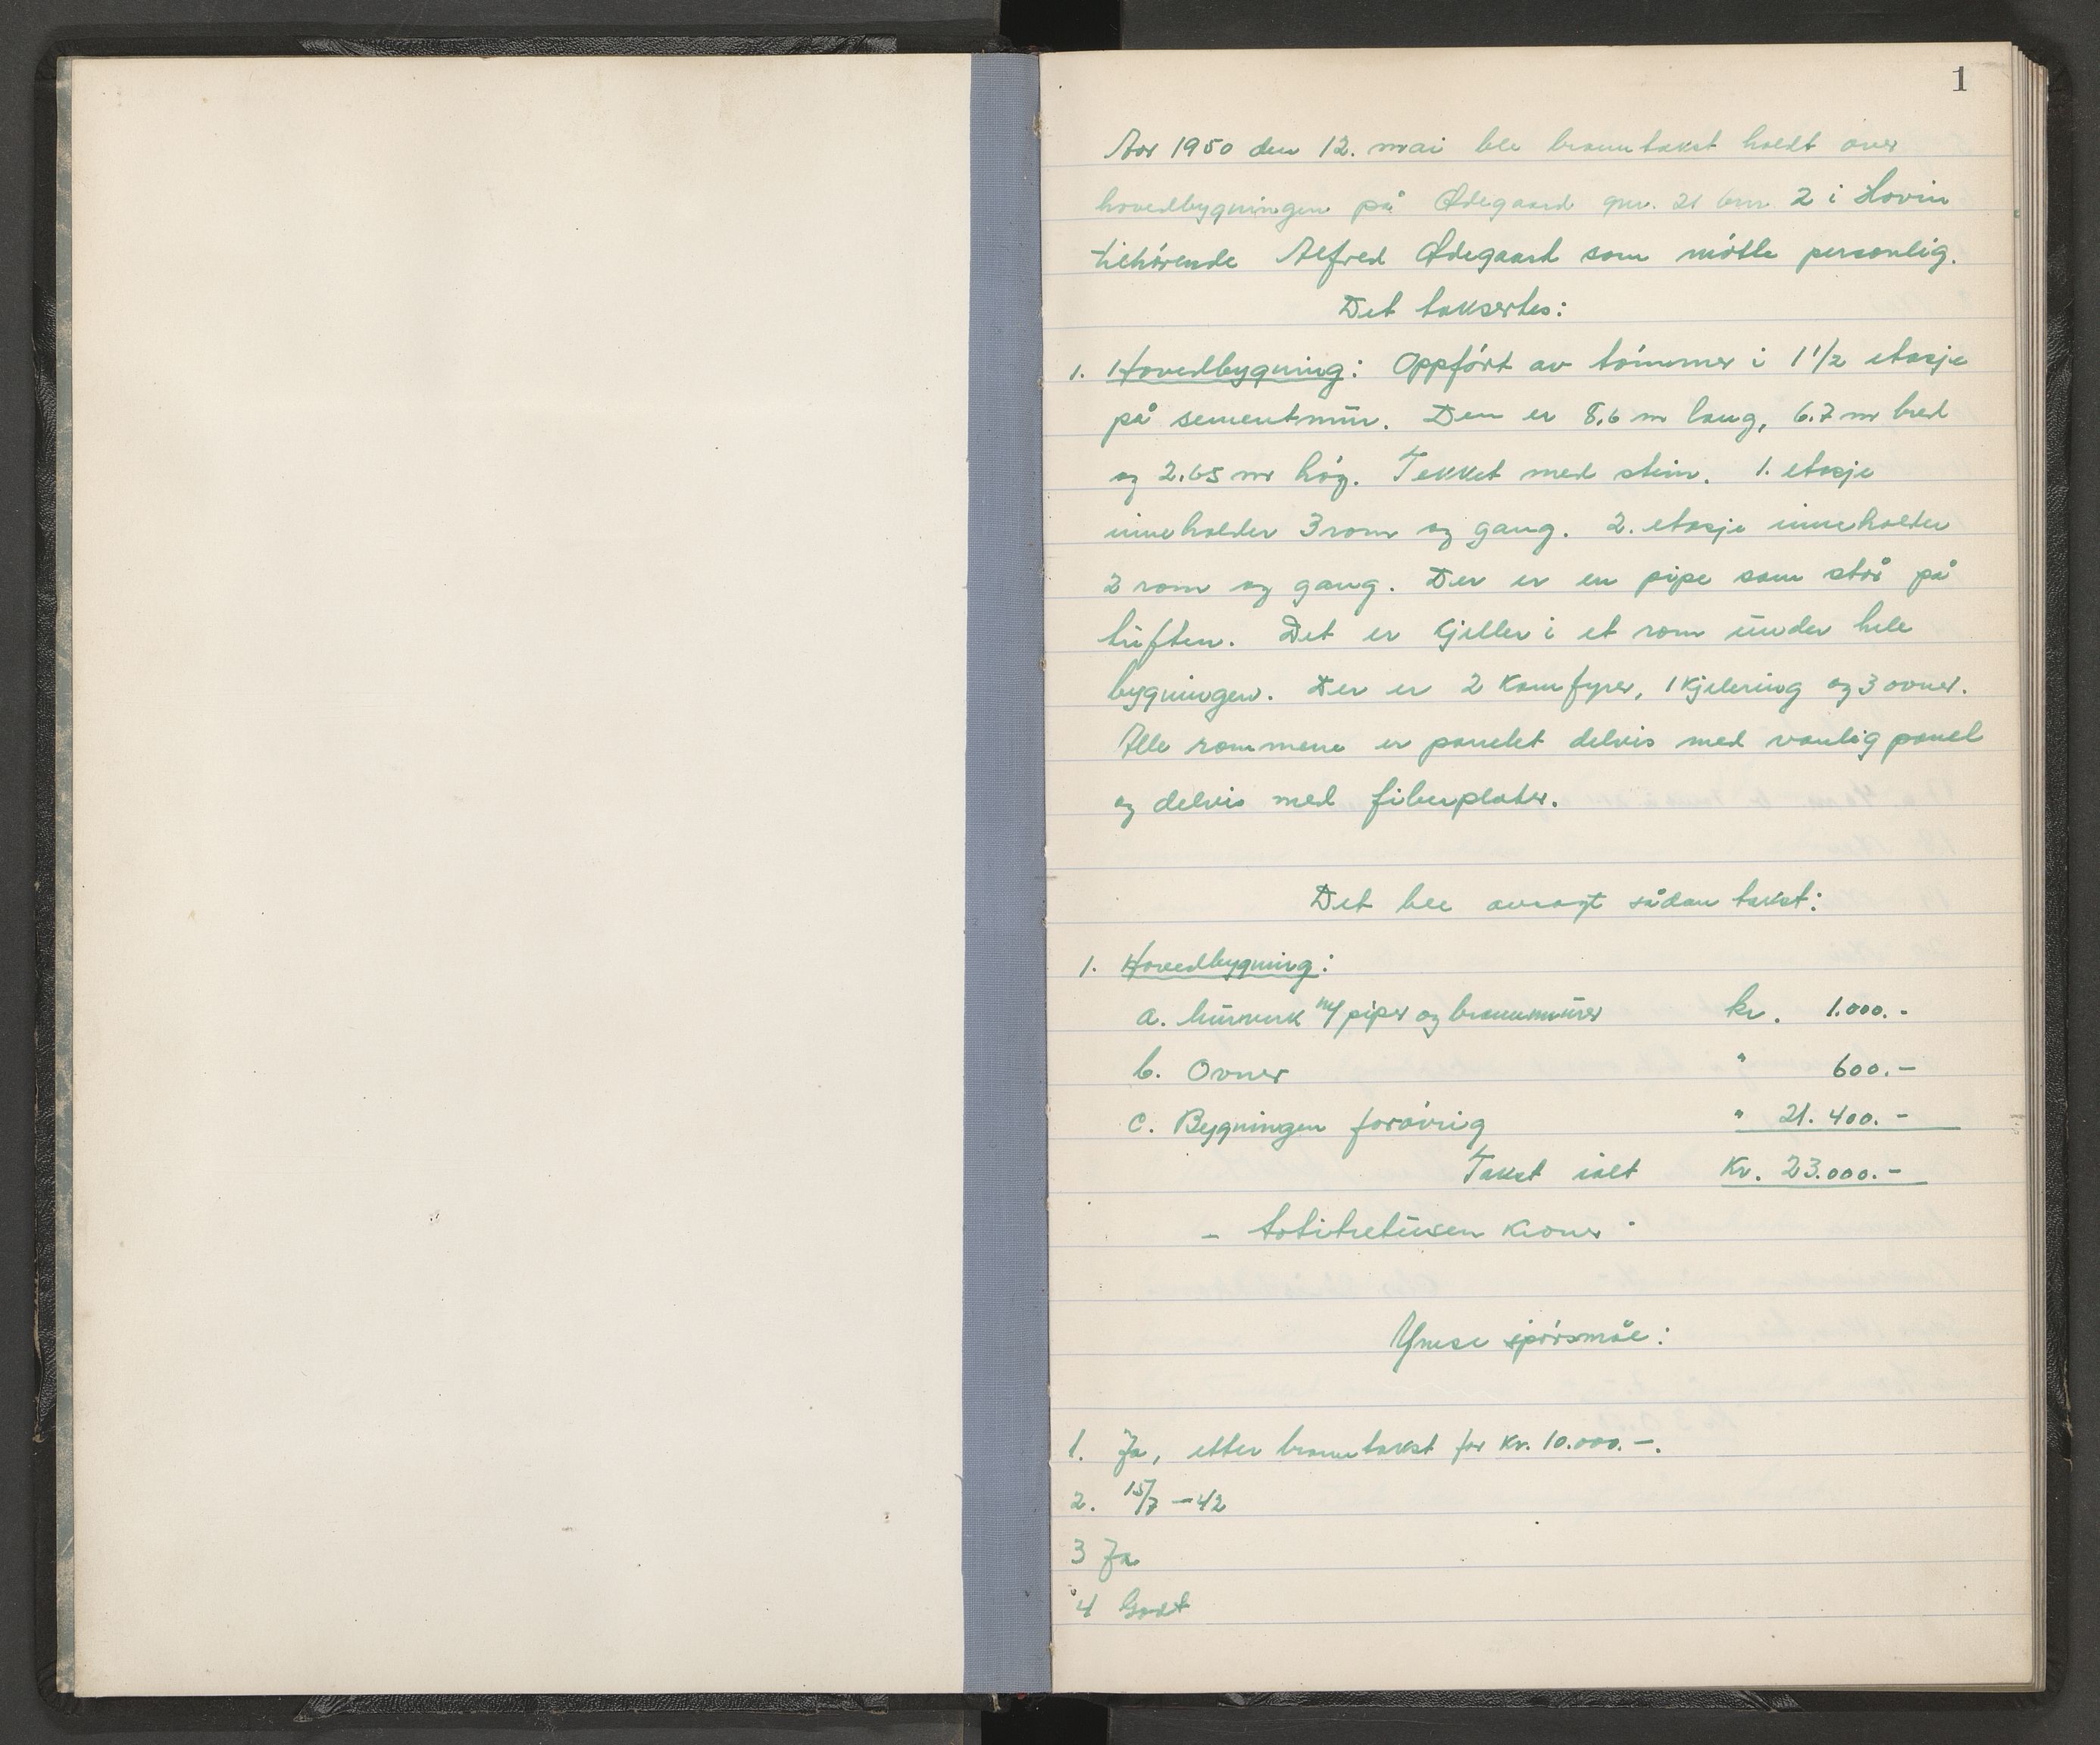 1
Aar 1950 den 12. mai ble branntakst holdt over
hovedbygningen på Ødegaard gnr. 21 bnr. 2 i Hovin
tilhörende Alfred Ødegaard som mötte personlig.
Det taksertes:
1. Hovedbygning: Oppfört av tömmer i 1 1/2 etasje
på sementmur. Den er 8,6 m lang, 6.7 m bred
og 2.65 m hög. Tekket med stein. 1. etasje
inneholder 3 rom og gang. 2. etasje inneholder
2 rom og gang. Der er en pipe som står på
tuften. Det er kjeller i et rom under hele
bygningen. Der er 2 komfyrer, 1 kjelering og 3 ovner.
Alle rommene er panelet delvis med vanlig panel
og delvis med fiberplater.
Det ble avsagt sådan takst:
1. Hovedbygning:
a. Murverk m/ piper og brannmurer kr. 1.000.-
b. Ovner " 600.-
c. Bygningen forövrig " 21.400.-
Takst ialt Kr. 23.000.-
- totitretusen kroner -
Ymse spörsmål:
1. Ja, etter branntakst for kr. 10.000.-.
2. 15/7 - 42
3 Ja
4 Godt